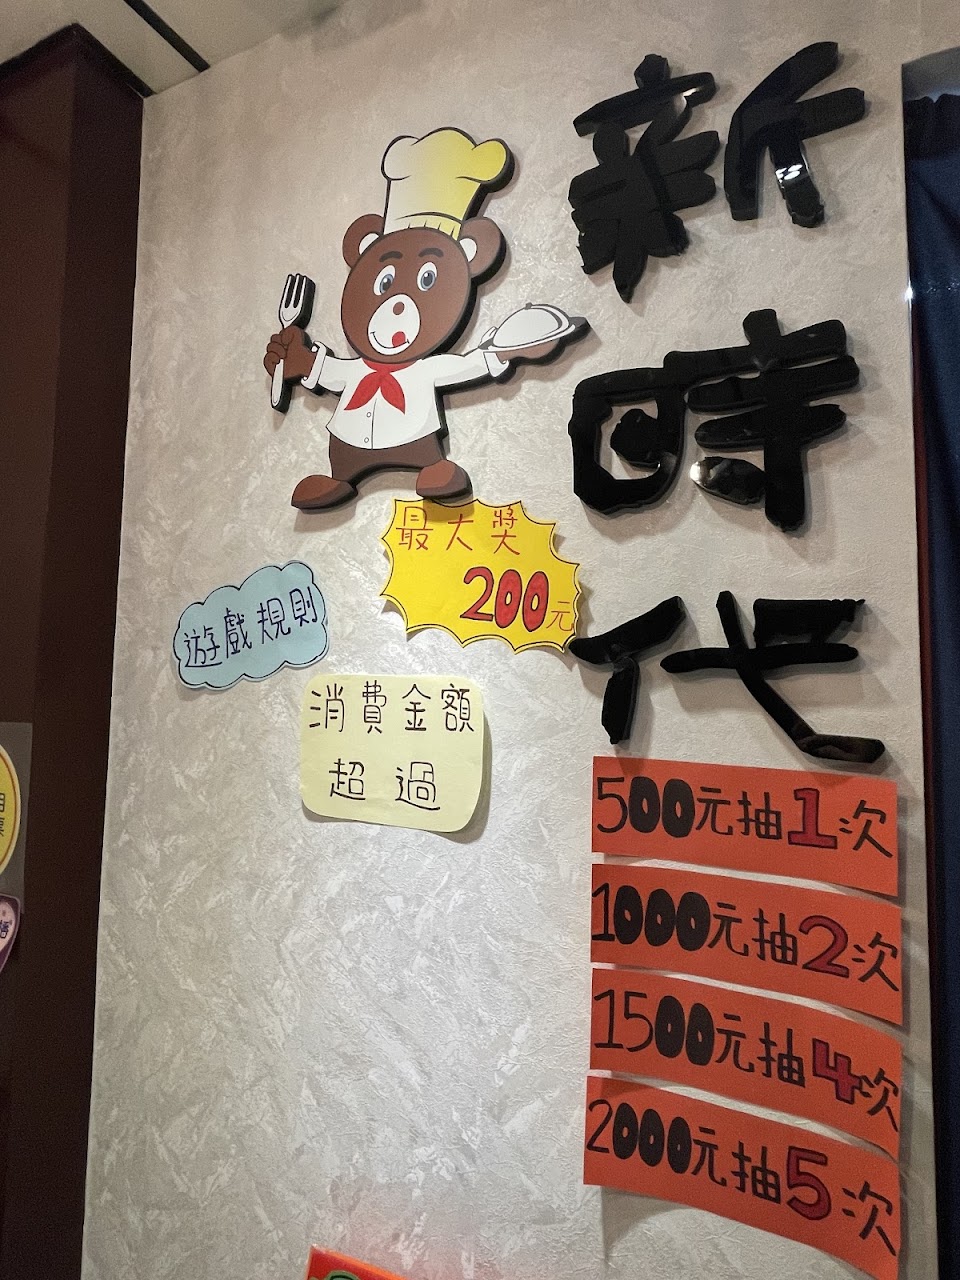 新時代
最大獎
200元
遊戲規則
消費金額
超過
500元抽1次
1000元抽2次
1500元抽4次
2000元抽5次